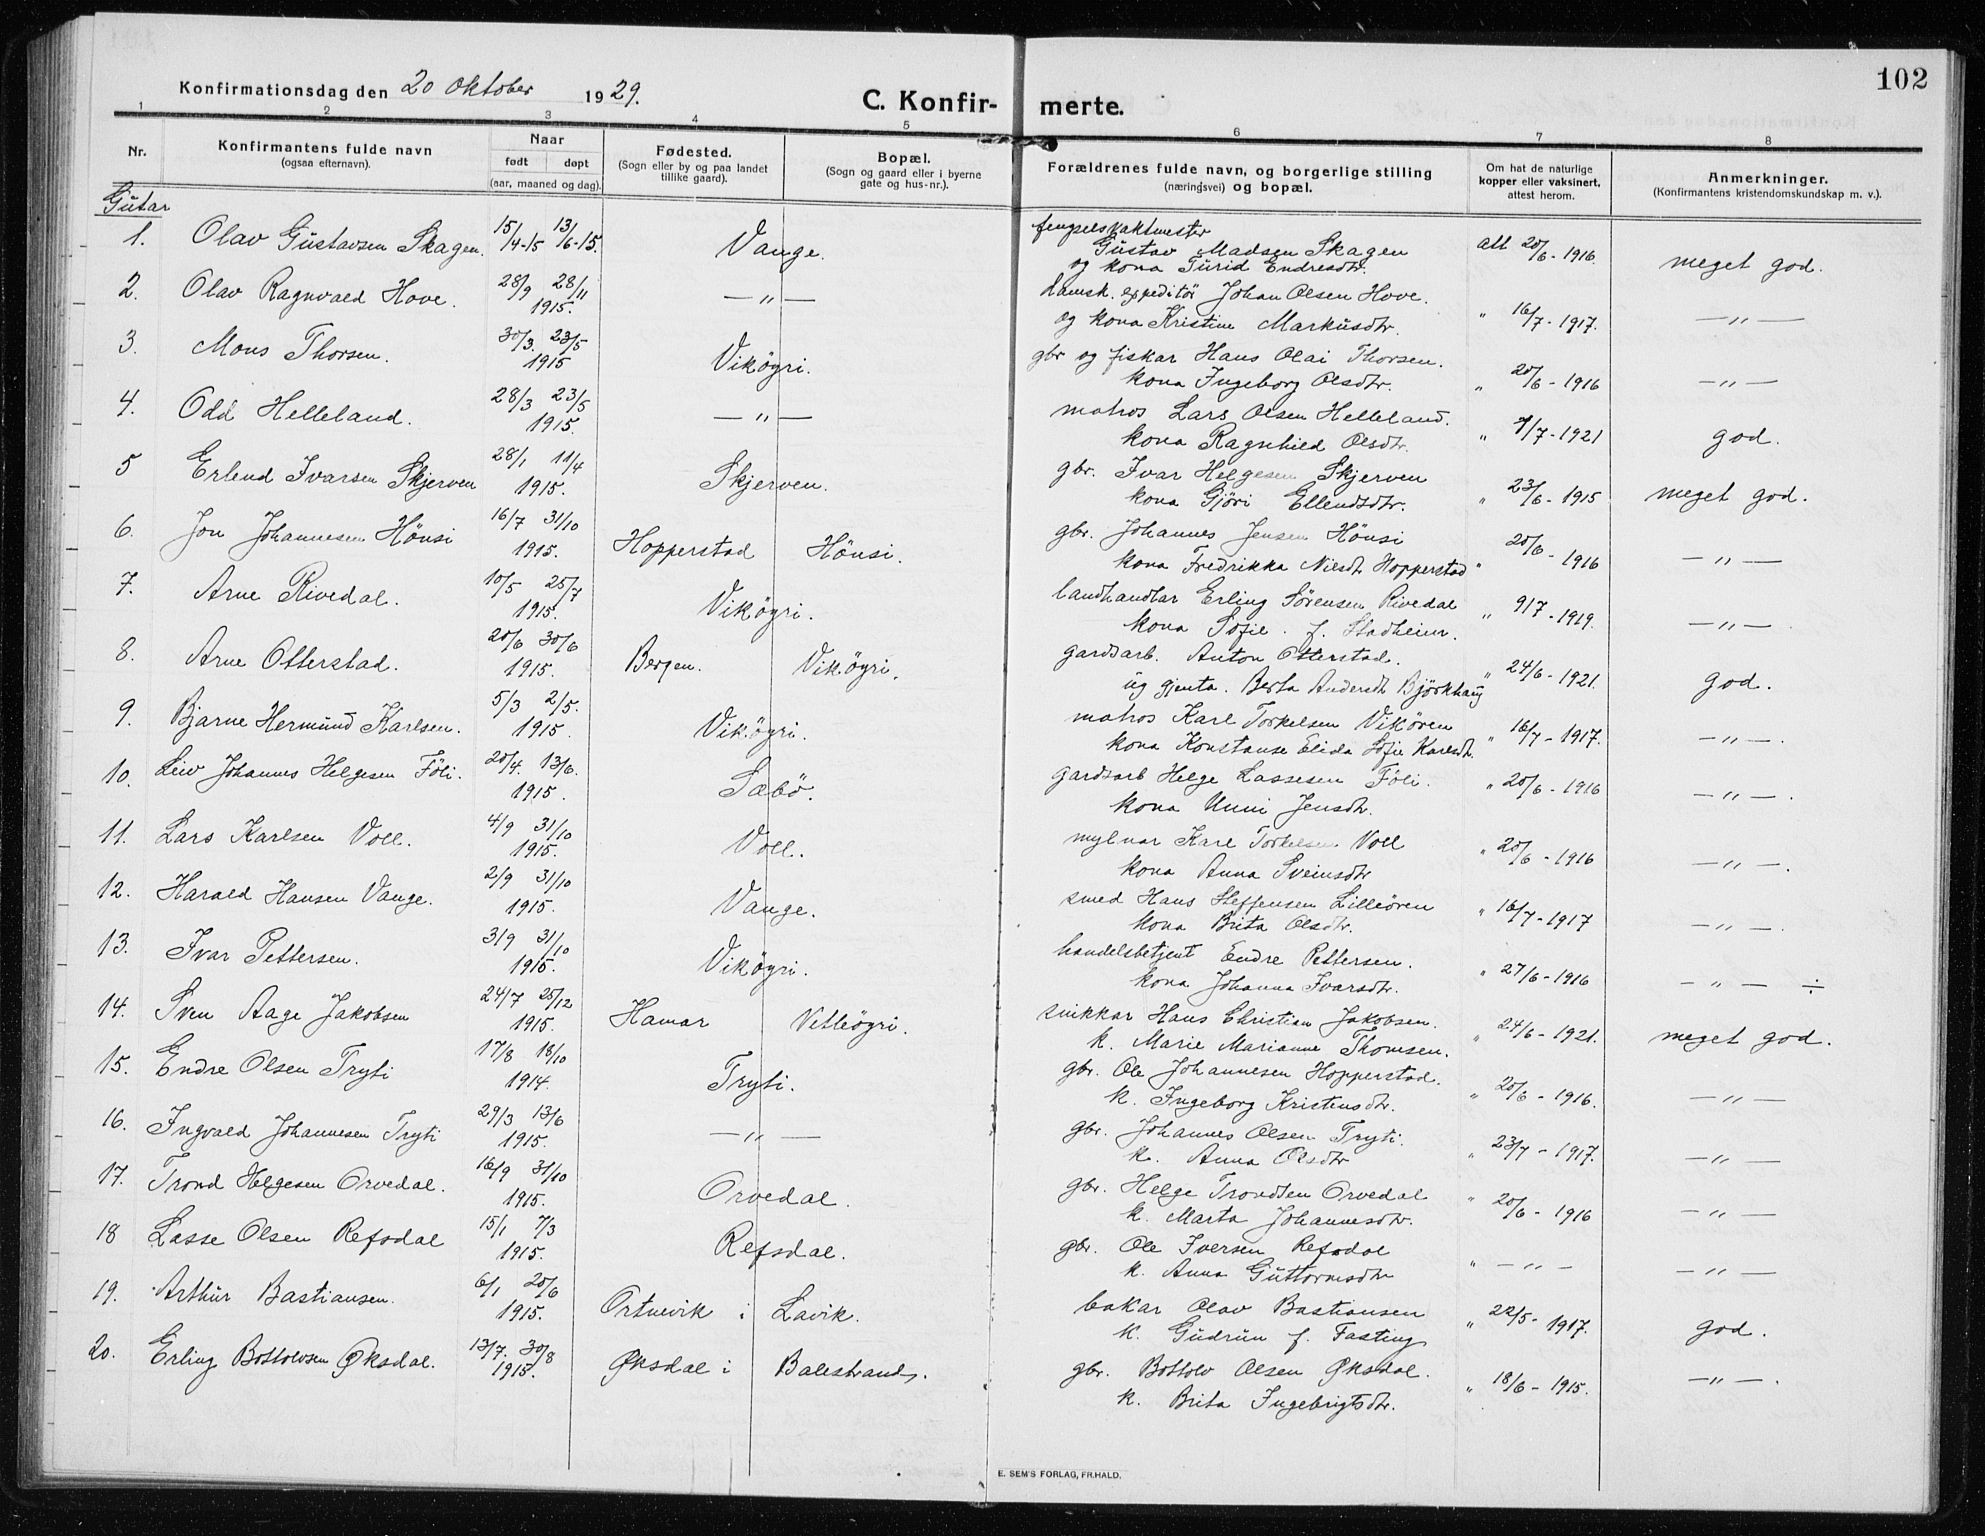 102
Konfirmationsdag den 20 Oktober 1929.
C. Konfirmerte.
1 2 3 4 5 6 7 8
Nr.
Konfirmantens fulde navn
(ogsaa efternavn).
Naar
født døpt
(aar, maaned og dag).
Fødested.
(Sogn eller by og paa landet
tillike gaard).
Bopæl.
(Sogn og gaard eller i byerne
gate og hus-nr.).
Forældrenes fulde navn, og borgerlige stilling
(næringsvei) og bopæl.
Om hat de naturlige
kopper eller vaksinert,
attest herom.
Anmerkninger.
(Konfirmantens kristendomskundskap m. v.).
Gutar
1. Olav Gustavsen Skagen. 15/4-15 13/6-15. Vange. fengselsvaktmester
Gustav Madsen Skagen att 20/6 - 1916. meget god.
og kona Turid Endresdtr.
2. Olav Ragnvald Hove. 28/9 28/11 1915. —„— damsk. expeditör Johan Olsen Hove.
og kona Kristine Markusdtr. „ 16/7 - 1917. —„—
3. Mons Thorsen. 30/3. 23/5 1915 Vikøyri. gbr og fiskar Hans Olai Thorsen.
kona Ingeborg Olsdtr. „ 20/6 - 1916 —„—
4. Odd Helleland. 28/3 23/5 1915. —„— matros Lars Olsen Helleland.
kona Ragnhild Olsdtr. „ 1/7 - 1921 god.
5 Erlend Ivarsen Skjerven 28/1 11/4 1915. Skjerven. gbr. Ivar Helgesen Skjerven
kona Gjöri Ellendsdtr. „ 23/6 - 1915 meget god.
6. Jon Johannesen Hönsi 16/7 31/10 1915. Hopperstad Hönsi. gbr. Johannes Jensen Hönsi
kona Fredrikka Nilsdtr Hopperstad „ 20/6 - 1916 —„—
7. Arne Rivedal. 10/5 25/7 1915. Vikøyri. landhandlar Erling Sörensen Rivedal
kona Sofie f. Stadheim. „ 9/7 - 1919. —„—.
8. Arne Otterstad. 20/6 30/6 1915. Bergen. Vikøyri. gardsarb. Anton Otterstad.
ug gjenta. Berta Andersdt Björkhaug „ 24/6 - 1921. god.
9. Bjarne Hermund Karlsen. 5/3 2/5. 1915. Vikøyri. matros Karl Torkelsen Vikören
kona Konstanse Elida Sofie Karlsdtr. „ 16/7 - 1917. —„—.
10. Leiv Johannes Helgesen Föli. 20/4. 13/6. 1915. Sæbö. gardsarb Helge Lassesen Föli.
kona Unni Jensdtr. „ 20/6 - 1916 —„—.
11. Lars Karlsen Voll. 4/9 31/10 1915. Voll. mylnar Karl Torkelsen Voll
kona Anna Sveinsdtr „ 20/6 - 1916 —„—.
12. Harald Hansen Vange. 2/9 31/10 1915. Vange. smed Hans Steffensen Lilleören
kona Brita Olsdtr. „ 16/7 - 1917 —„—.
13. Ivar Pettersen. 3/9 31/10 1915. Vikøyri. handelsbetjent Endre Pettersen.
kona Johanna Ivarsdtr. „ 27/6 - 1916 —„— ÷
14. Sven Aage Jakobsen 24/7 25/12 1915. Hamar Vetleöyri. snikkar Hans Christian Jakobsen.
k. Marie Marianne Thomsen. „ 24/6 - 1921. meget god.
15. Endre Olsen Tryti 17/8 18/10 1914. Tryti. gbr. Ole Johannesen Hopperstad.
k. Ingeborg Kristensdtr. „ 20/6 - 1916. —„—
16. Ingvald Johannesen Tryti 29/3 13/6 1915. —„— gbr. Johannes Olsen Tryti.
k. Anna Olsdtr „ 23/7 - 1917. —„—
17. Trond Helgesen Orvedal. 16/9 31/10 1915. Orvedal. gbr. Helge Trondsen Orvedal
k. Marta Johannesdtr. „ 20/6 - 1916 —„—
18 Lasse Olsen Refsdal 15/1 7/3 1915. Refsdal. gbr. Ole Iversen Refsdal
k. Anna Guttormsdtr „ —„— —„—
19. Arthur Bastiansen. 6/1 20/6 1915. Ortnevik i Lavik. bakar Olav Bastiansen
k. Gudrun f. Fasting „ 22/5 - 1917. god.
20. Erling Bottolvsen Øksdal. 13/7. 30/8 1915. Øksdal i Balestrand. gbr. Bottolv Olsen Øksdal.
k. Brita Ingebrigtsdtr. „ 18/6 - 1915. —„—.
E. SEM'S FORLAG, FR.HALD.